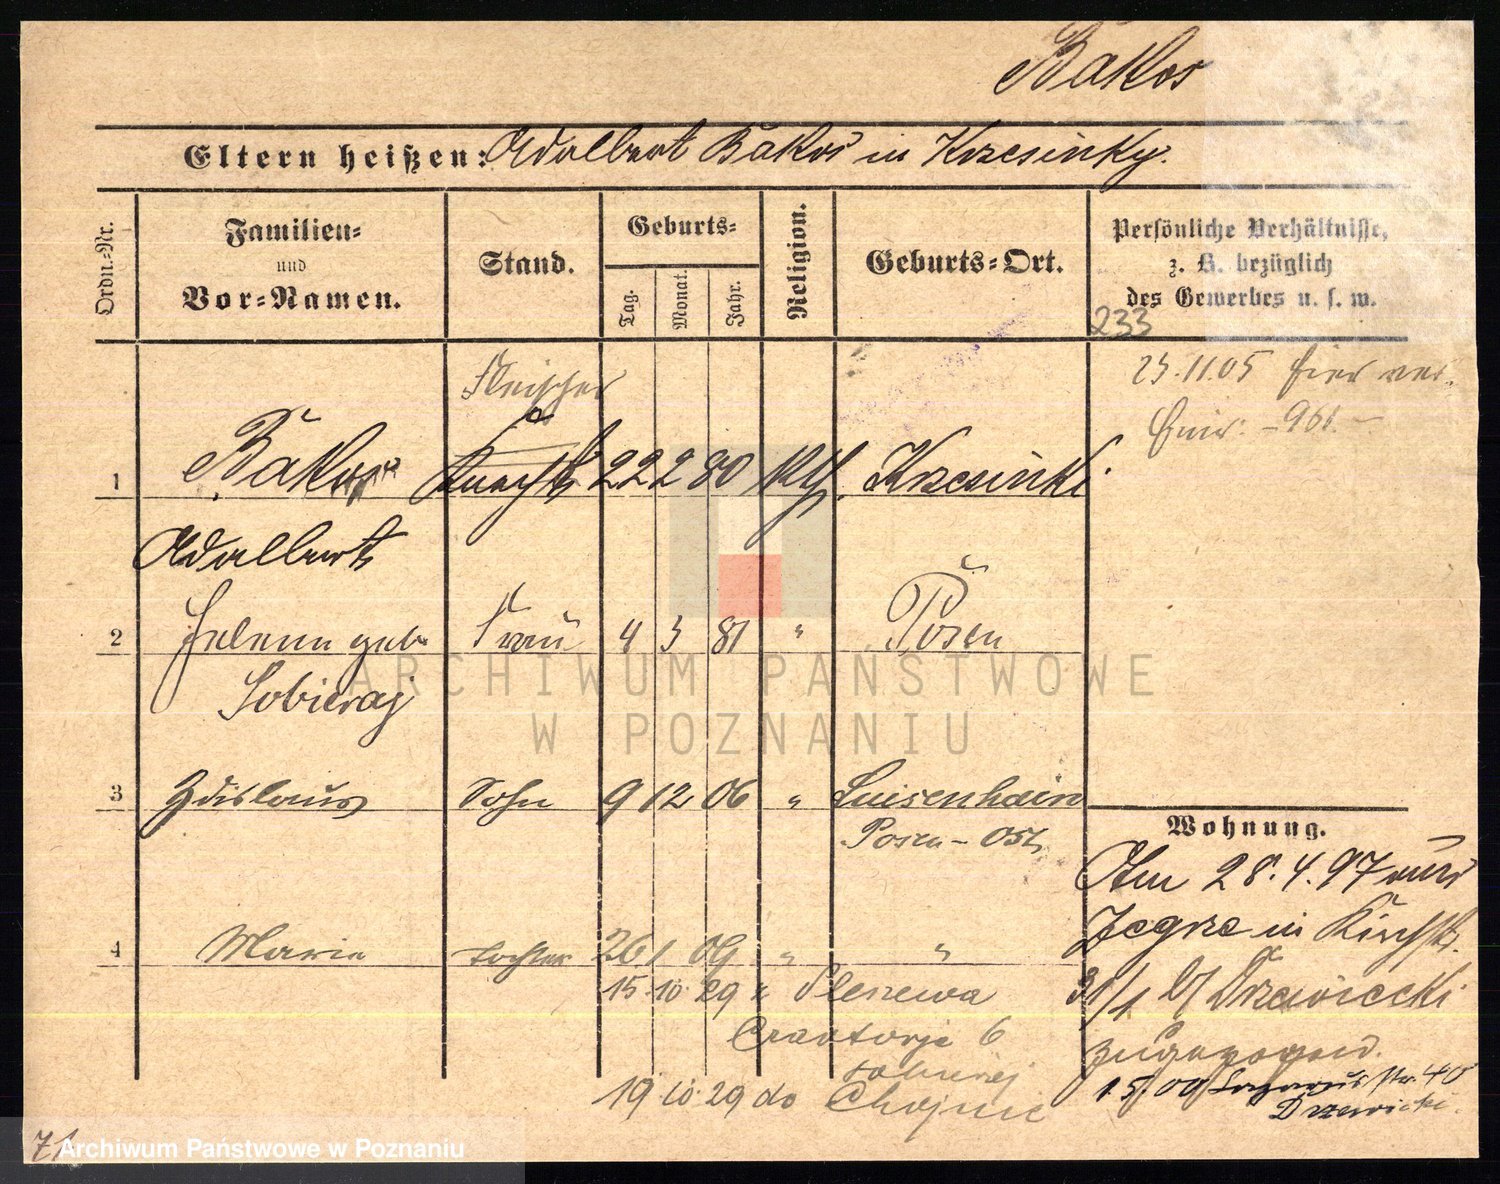 Bakos
Eltern heißen: Adalbert Bakos in Krzesinky.
Ordn.-Nr.
Familien- und Vor-Namen.
Stand.
Geburts-
Tag. Monat. Jahr.
Religion.
Geburts-Ort.
Persönliche Verhältnisse, z. B. bezüglich des Gewerbes u. s. w.
233
Fleischer
23.11.05 hier ver-
heir. - 961. -
1 Bakos Knecht 22 2 80 kth. Krzesinki
Adalbert
2 Helene geb. Frau 4 3 81 " Posen
Sobieraj
ARCHIWUM PAŃSTWOWE
W POZNANIU
3 Zdislaus Sohn 9 12 06 " Luisenhain
Posen-Ost
Wohnung.
Am 28.4.97 aus
Zegrze in Kirchstr.
4 Marie Tochter 26 1 09 " "
31/1 b/ Drzewiecki
zugezogen.
15.10.29 z Pleszewa
6
19.10.29 do Chojnic
15. 00 Lazarus str. 40
Drzewicki.
71
Archiwum Państwowe w Poznaniu